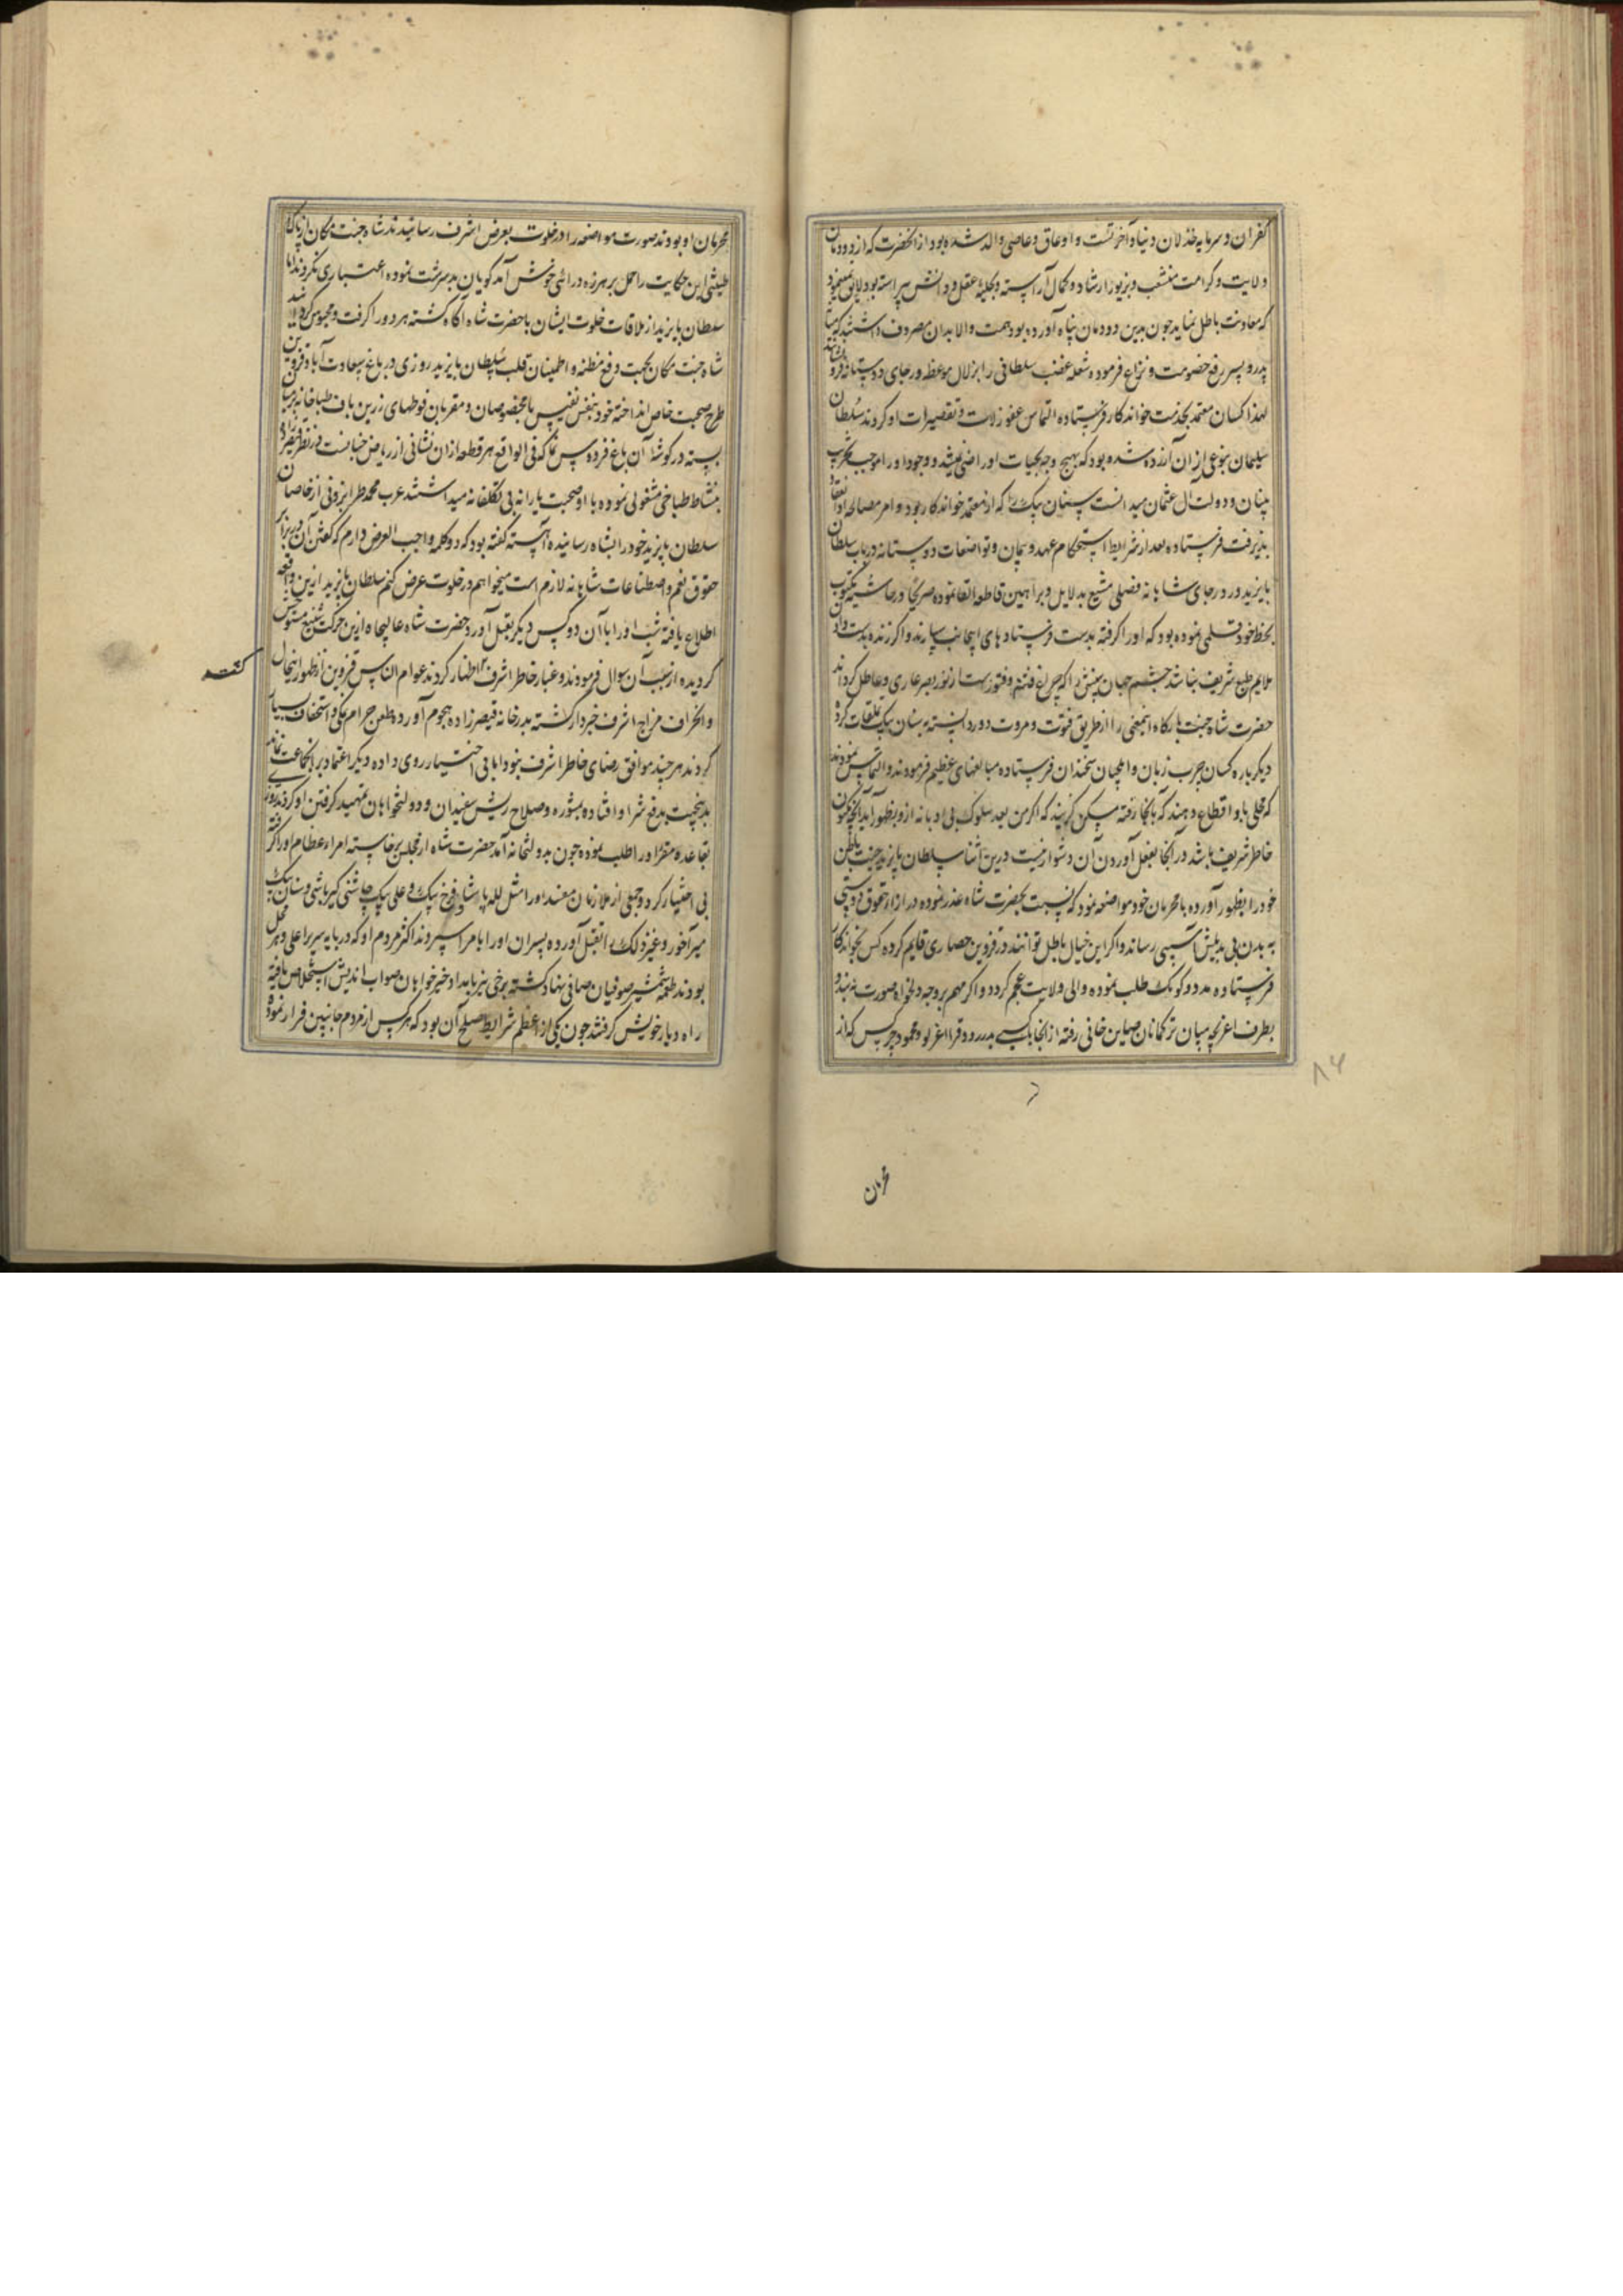 کفران و سرمایه خذلان دنیا و آخرتست و او عاق و عاصی والد شده بود از آنحضرت که از دودمان
ولایت و کرامت منشعب و بزیور ارشاد و کمال آراسته و بحلیه عقل و دانش پیراسته بود لایق نمینمود
که معاونت باطل نماید چون بدین دودمان پناه آورده بود همت والا بدان مصروف داشتند که میانه
پدر و پسر رفع خصومت و نزاع فرموده شعله غضب سلطانی را بزلال موعظه و رجای دوستانه فرو نشانند
لهذا کسان معتمد بخدمت خواندکار فرستاده التماس عفو زلات و تقصیرات او کردند سلطان
سلیمان بنوعی ازان آزرده شده بود که بهیچ وجه بحیات او راضی نمیشد و وجود او را موجب تخریب
بنیان دولت ال عثمان میدانست سنان بیک را که از معتمد خواندکار بود و امر مصالحه او انعقاد
پذیرفت فرستاده بعد از شرایط استحکام عهد و پیمان و تواضعات دوستانه در باب سلطان
بایزید و رد رجای شاهانه فصلی مشبع بدلایل و براهین قاطعه القا نموده صریحا در حاشیه مکتوب
بخط خود قلمی نموده بود که او را گرفته بدست فرستادهای اینجانب سپارند و اگر زنده بدست دادن
ملایم طبع شریف نباشد چشم جهان بینش را که چراغ فتنه و فتورست از نور بصر عاری و عاطل گردانند
حضرت شاه جنت بارگاه اینمعنی را از طریق فتوت و مروت دور دانسته به سنان بیک تعلقات کرده
دیگر باره کسان چرب زبان و ایلچیان سخندان فرستاده مبالغهای عظیم فرمودند و التماس نمودند
که محلی باو اقطاع دهند که بانجا رفته مسکن گزیند که اگر من بعد سلوک بی ادبانه ازو بظهور آید آنچه مکنون
خاطر شریف باشد در آنجا بفعل آوردن آن دشوار نیست درین اثنا سلطان بایزید خبث باطن
خود را بظهور آورده با محرمان خود مواضعه نمود که نسبت بحضرت شاه عذر نموده در ازاء حقوق دوستی
به بدن بی بدیلش آسیبی رساند و اگر این خیال باطل توانند در قزوین حصاری قایم کرده کس بخواندکار
فرستاده مدد و کومک طلب نموده والی ولایت عجم گردد و اگر مهم بر وجه دلخواه صورت نبندد
بطرف اغرچه میان ترکمانان صاین خانی رفته از انجا بکسی بدر رود قرا اغرلو و محمود چرکس که از
محرمان
محرمان او بودند صورت مواضعه را در خلوت بعرض اشرف رسانیدند شاه جنت مکان از پاکی
طینت این حکایت را حمل بر هرزه درائی خوش آمد گویان بد سرشت نموده اعتباری نکردند اما
سلطان بایزید از ملاقات خلوت ایشان با حضرت شاه آگاه گشته هر دو را گرفت و محبوس گردانید
شاه جنت مکان بجهت رفع مظنه و اطمینان قلب سلطان بایزید روزی در باغ سعادت آباد قزوین
طرح صحبت خاص انداخته خود بنفس نفیس با مخصوصان و مقربان فوطهای زرین باف طباخانه بر میان
بسته در گوشه آن باغ فردوس نما که فی الواقع هر قطعه ازان نشانی از ریاض جنانست
بنشاط طباخی مشغولی نموده با او صحبت یارانه بی تکلفانه میداشتند عرب محمد طرابزونی از خاصان
سلطان بایزید خود را بشاه رسانیده آهسته گفته بود که دو کلمه واجب العرض دارم که گفتن آن در برابر
حقوق نعم و اصطناعات شاهانه لازم است میخواهم در خلوت عرض کنم سلطان بایزید ازین واقعه
اطلاع یافته شب او را با آن دو کس دیگر بقتل آورد حضرت شاه عالیجاه ازین حرکت شنیع متوحش
گردیده از سبب آن سوال فرمودند و غبار خاطر اشرف اظهار کردند عوام الناس قزوین از ظهور اینحال
و انحراف مزاج اشرف خبردار گشته بدرخانه قیصرزاده هجوم آورده طعن حرام نمکی و استخفاف بسیار
کردند هر چند موافق رضای خاطر اشرف نبود اما بی اختیار روی داده دیگر اعتماد بر آنجماعت نماند
بدینجهت بدفع شر او افتاده بمشوره و صلاح ریش سفیدان و دولتخواهان تمهید گرفتن او کردند روزی
بقاعده مقرر او را طلب نموده چون بدولتخانه آمد حضرت شاه از مجلس برخاسته امراء عظام او را گرفته
بی اختیار کرد و جمعی از ملازمان مفسد او را مثل لله پاشا و فرخ بیک و علی بیک چاشنی گیرباشی و سنان بیک
میرآخور و غیر ذلک را بقتل آورده پسران او را بامرا سپردند اکثر مردم او که در پایه سریر اعلی و هر محل
بودند طعمه شمشیر صوفیان صافی نهاد گشته برخی نیز بامداد خیرخواهان صواب اندیش استخلاص یافته
راه دیار خویش گرفتند چون یکی از اعظم شرایط صلح آن بود که هر کس از مردم جانبین فرار نموده